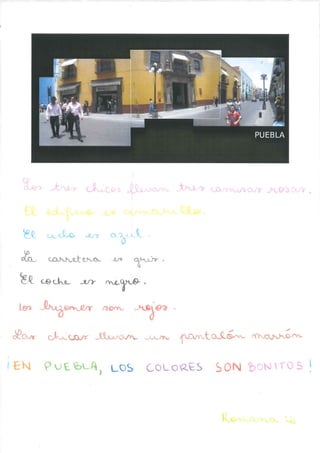 PUEBLA
Los tres chicos llevan tres camisas rosas.
El edificio es amarillo.
El cielo es azul.
La carretera es gris.
El coche es negro.
Los buzones son rojos.
Las chicas llevan un pantalón marrón
¡EN PUEBLA, LOS COLORES SON BONITOS!
Romana